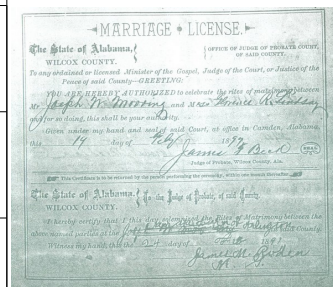 MARRIAGE LICENSE.
The State of Alabama,
WILCOX COUNTY.
OFFICE OF JUDGE OF PROBATE COURT,
OF SAID COUNTY.
To any ordained or licensed Minister of the Gospel, Judge of the Court, or Justice of the
Peace of said County—GREETING:
YOU ARE HEREBY AUTHORIZED to celebrate the rites of matrimony between
Mr. Joseph M and M
and for so doing, this shall be your authority.
Given under my hand and seal of said Court, at office in Camden, Alabama,
this 14 day of Feby 1897
James F Beck SEAL
Judge of Probate, Wilcox County, Ala.
This Certificate is to be returned by the person performing the ceremony, within one month thereafter.
The State of Alabama,
WILCOX COUNTY.
To the Judge of Probate, of said County.
I hereby certify that I this day solemnized the Rites of Matrimony between the
above named parties at the in said County.
Witness my hand, this the day of 189